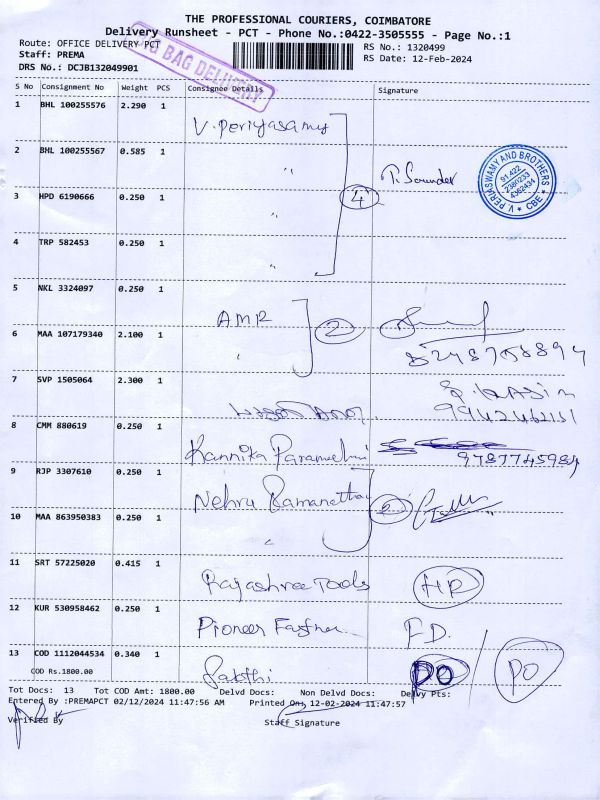 THE PROFESSIONAL COURIERS, COIMBATORE
Delivery Runsheet - PCT - Phone No.:0422-3505555 - Page No.:1
Route: OFFICE DELIVERY PCT
RS No.: 1320499
Staff: PREMA
RS Date: 12-Feb-2024
DRS No.: DCJB132049901
BAG DELIVERY
S No Consignment No Weight PCS Consignee Details Signature
1 BHL 100255576 2.290 1 V. Periyasamy
2 BHL 100255567 0.585 1 "
V PERIASWAMY AND BROTHERS
91-422
2380233
4362434
* CBE *
3 HPD 6190666 0.250 1 " 4
4 TRP 582453 0.250 1 "
5 NKL 3324097 0.250 1 AMR 2
6 MAA 107179340 2.100 1 "
7 SVP 1505064 2.300 1
8 CMM 880619 0.250 1 Kannika
9 RJP 3307610 0.250 1 Nehru 2
10 MAA 863950383 0.250 1 "
11 SRT 57225020 0.415 1 Rajashree Tools HR
12 KUR 530958462 0.250 1 Pioneer F.D.
13 COD 1112044534 0.340 1 Sakthi PO / PO
COD Rs.1800.00
Tot Docs: 13 Tot COD Amt: 1800.00 Delvd Docs: Non Delvd Docs: Delvy Pts:
Entered By :PREMAPCT 02/12/2024 11:47:56 AM Printed On, 12-02-2024 11:47:57
Verified By Staff Signature